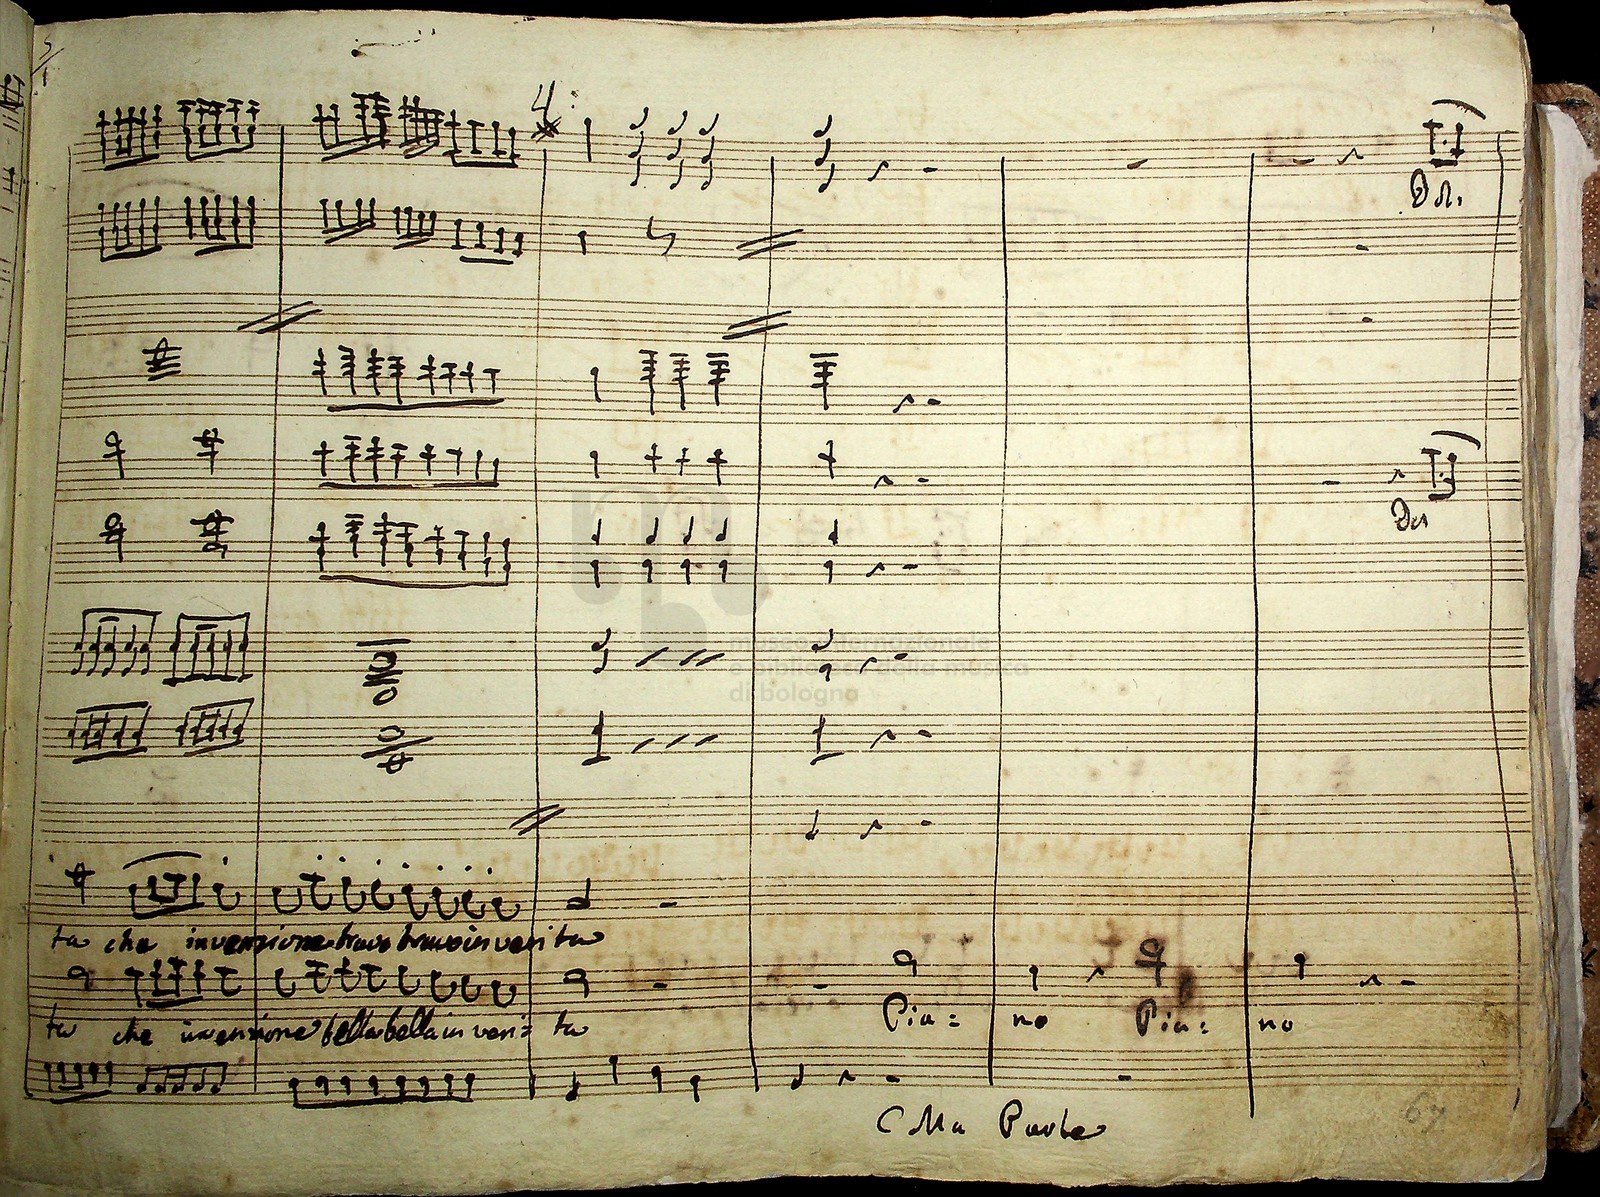 4:
Dol.
Dol
museo internazionale
e biblioteca della musica
di bologna
ta che invenzione bravo bravo in verita
Pia: no Pia: no
ta che invenzione bella bella in veri= ta
Colla Parte
67